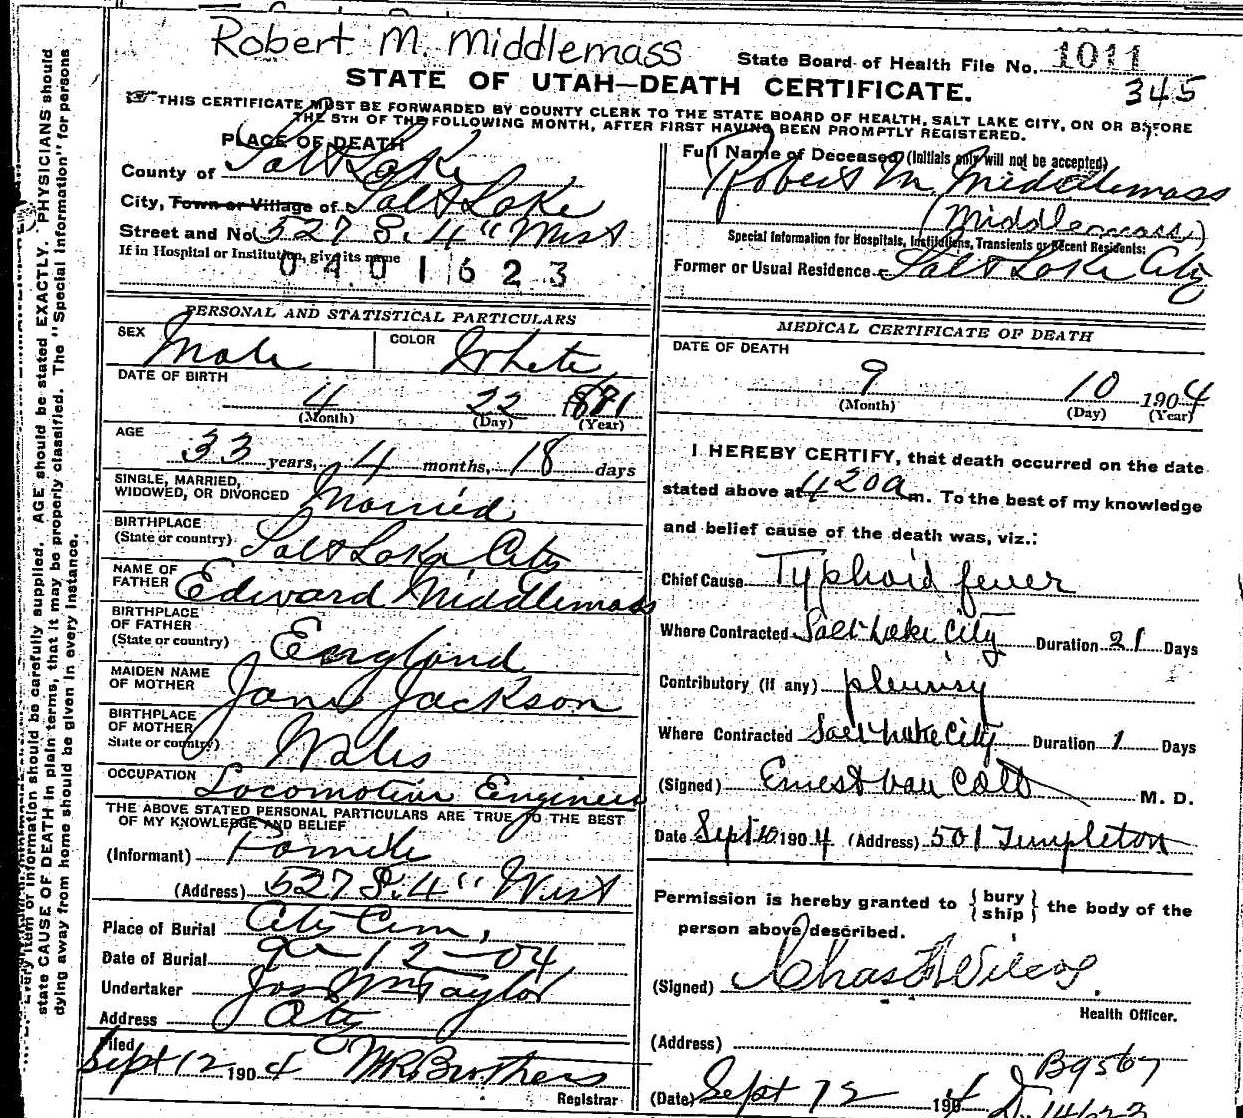 Robert M. Middlemass
State Board of Health File No. 1011
345
STATE OF UTAH—DEATH CERTIFICATE.
THIS CERTIFICATE MUST BE FORWARDED BY COUNTY CLERK TO THE STATE BOARD OF HEALTH, SALT LAKE CITY, ON OR BEFORE
THE 5TH OF THE FOLLOWING MONTH, AFTER FIRST HAVING BEEN PROMPTLY REGISTERED.
PLACE OF DEATH
County of Salt Lake
City, Town or Village of Salt Lake
Street and No. 527 S. 4" West
If in Hospital or Institution, give its name
0401623
Full Name of Deceased (Initials only will not be accepted)
Robert M Middlemass
(Middlemass)
Special Information for Hospitals, Institutions, Transients or Recent Residents:
Former or Usual Residence Salt Lake City
PERSONAL AND STATISTICAL PARTICULARS
SEX Male COLOR White
DATE OF BIRTH
4 22 1871
(Month) (Day) (Year)
AGE
33 years, 4 months, 18 days
SINGLE, MARRIED,
WIDOWED, OR DIVORCED Married
BIRTHPLACE
(State or country) Salt Lake City
NAME OF
FATHER Edward Middlemass
BIRTHPLACE
OF FATHER
(State or country) England
MAIDEN NAME
OF MOTHER Jane Jackson
BIRTHPLACE
OF MOTHER
State or country) Wales
OCCUPATION Locomotive Engineer
THE ABOVE STATED PERSONAL PARTICULARS ARE TRUE TO THE BEST
OF MY KNOWLEDGE AND BELIEF
(Informant) Family
(Address) 527 S. 4" West
Place of Burial City Cem,
Date of Burial 9-12-04
Undertaker Jos Wm Taylor
Address City
Filed
Sept 12 1904 MR Brothers
Registrar
MEDICAL CERTIFICATE OF DEATH
DATE OF DEATH
9 10 1904
(Month) (Day) (Year)
I HEREBY CERTIFY, that death occurred on the date
stated above at 420 a m. To the best of my knowledge
and belief cause of the death was, viz.:
Chief Cause Typhoid fever
Where Contracted Salt Lake City Duration 21 Days
Contributory (if any) pleurisy
Where Contracted Salt Lake City Duration 1 Days
(Signed) Ernest Van Cott M. D.
Date Sept 10 1904 (Address) 501 Templeton
Permission is hereby granted to {bury
ship} the body of the
person above described.
(Signed) Chas Wilcox
Health Officer.
(Address)
B9567
(Date) Sept 12 1904
Every item of information should be carefully supplied. AGE should be stated EXACTLY. PHYSICIANS should
state CAUSE OF DEATH in plain terms, that it may be properly classified. The "Special Information" for persons
dying away from home should be given in every instance.